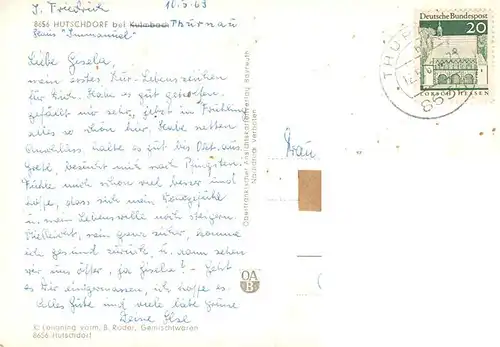 I. Friedrich 10.5.69
8656 HUTSCHDORF bei Kulmbach Thurnau
Haus "Immanuel"
Liebe Gisela,
mein erstes Kur-Lebenszeichen
für Dich. Habe es gut getroffen.
gefällt mir sehr, jetzt im Frühling
alles so schön hier. Habe netten
Anschluss, halte es gut bis Okt. aus.
Grete, besucht mich nach Pfingsten.
Fühle mich schon viel besser und
hoffe, dass sich mein
u. mein Lebenswille noch steigern.
Vielleicht, nein ganz sicher, komme
ich gesund zurück u. dann sehen
wir uns öfter, ja Gisela! - Geht
es Dir einigermassen, ich hoffe es.
Alles Gute und viele liebe Grüsse
Deine Ilse
K. Lenoning vorm. B. Röder, Gemischtwaren
8656 Hutschdorf
Oberfränkischer Ansichtskartenverlag Bayreuth
Nachdruck verboten
OA
B
Frau
Deutsche Bundespost
20
LORSCH/HESSEN
THURNAU